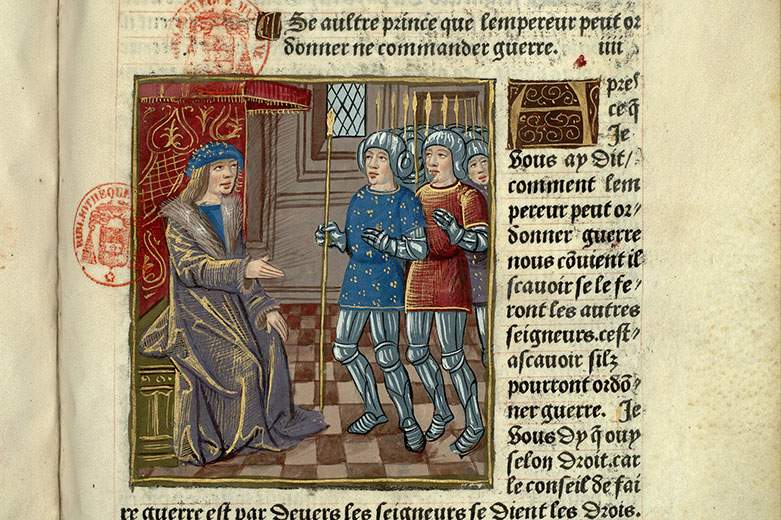 Se aultre prince que lempereur peut or
donner ne commander guerre. iiii
BIBLIOTHEQUE
A pres
ce q̃
Je
vous ay dit/
comment lem
pereur peut or/
donner guerre
nous cõuient il
scauoir se le fe/
ront les autres
seigneurs.cest/
ascauoir silz
pourront ordõ/
ner guerre. Je
vous dy q̃ ouy
selon droit.car
le conseil de fai/
re guerre est par deuers les seigneurs se dient les drois.